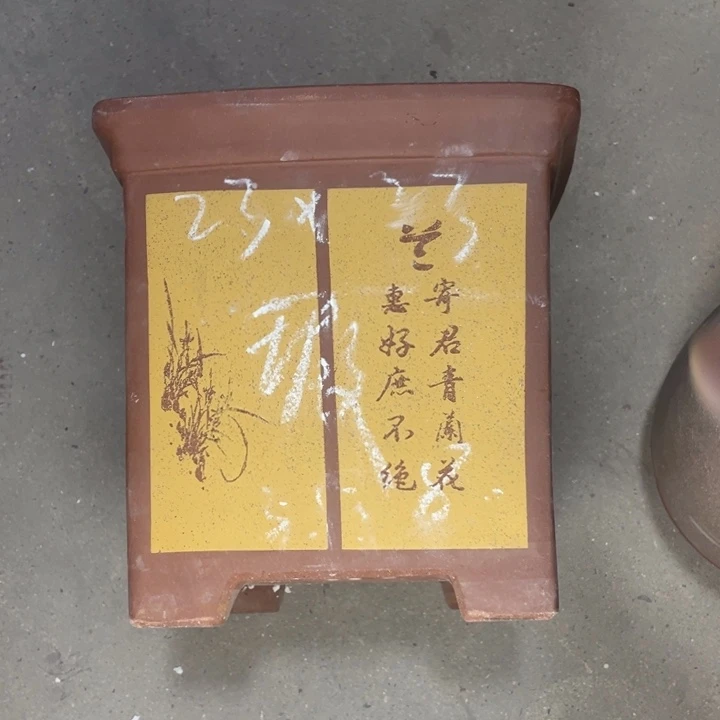 兰
寄君青蘭花
惠好庶不绝
23 x 33